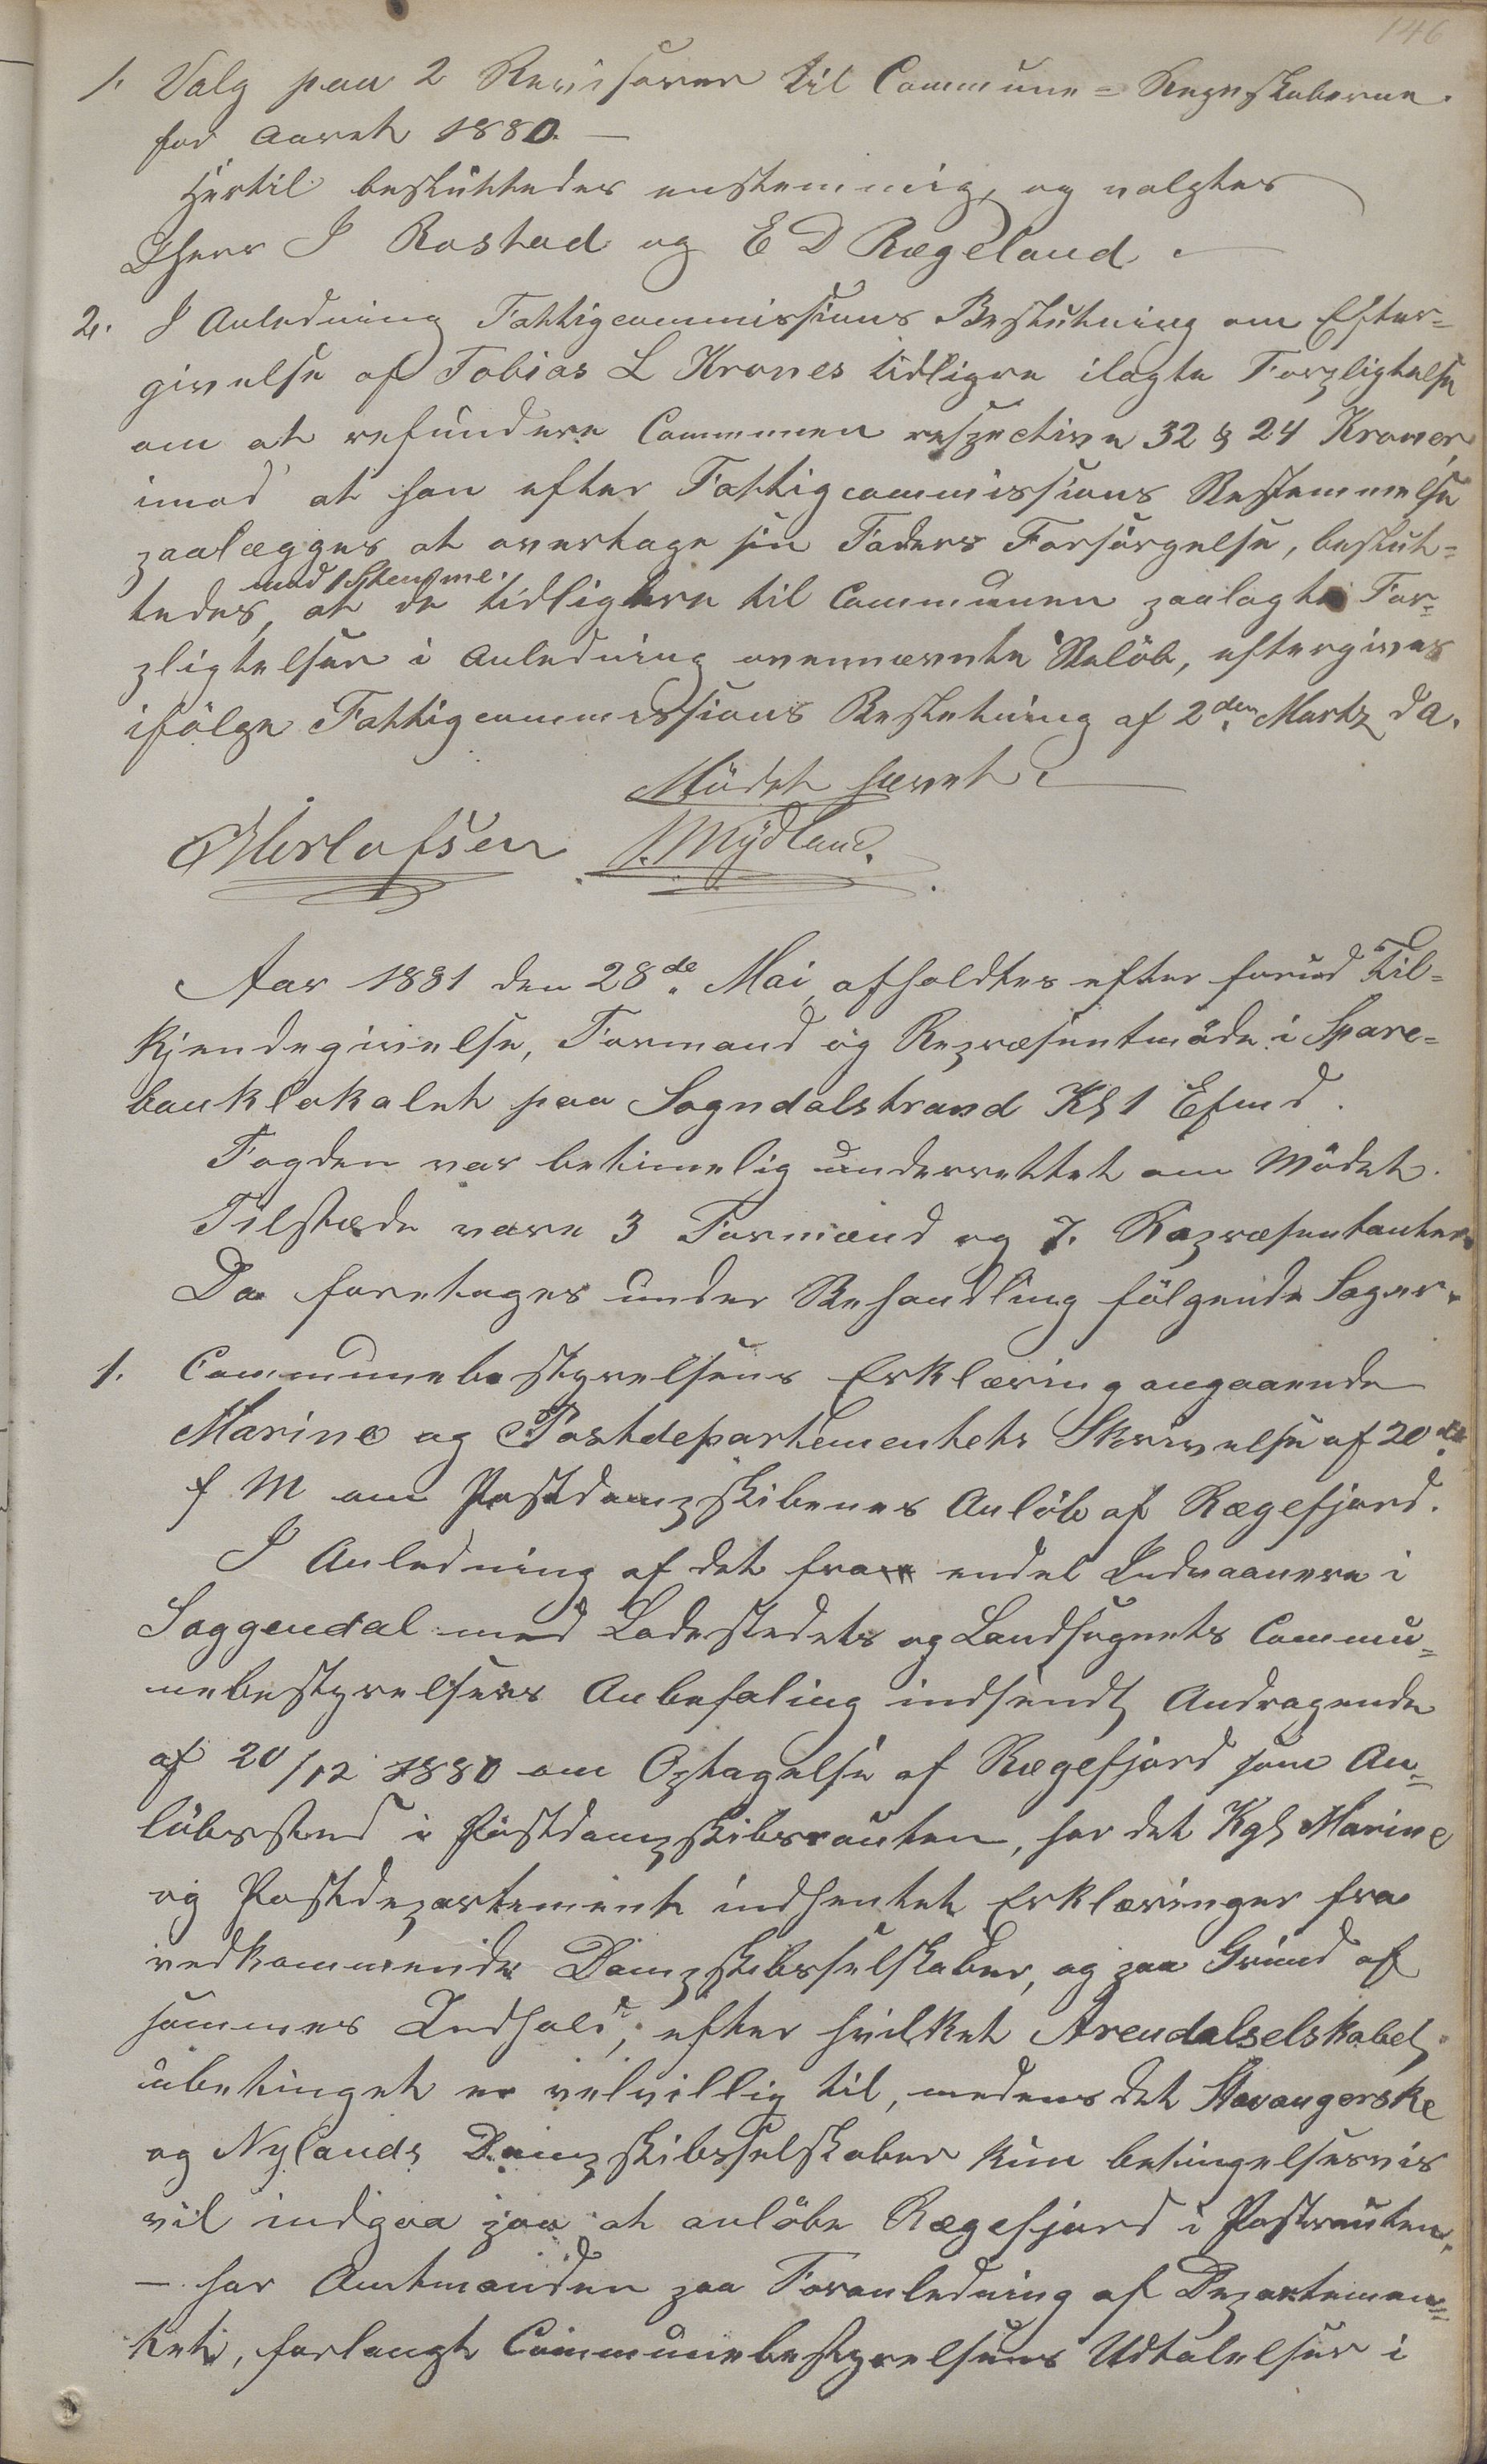 146
1. Valg paa 2 Revisorer til Commune-Regnskaberne
for Aaret 1880. —
Hertil besluttedes enstemmig, og valgtes
Dherr J Rostad og E D Rægeland.
2. I Anledning Fattigcommissions Beslutning om Efter-
givelse af Tobias L Krones tidligere ilagte Forpligtelse
om at refundere Communen respective 32 & 24 Kroner,
imod at han efter Fattigcommissions Bestemmelse
paalægges at overtage sin Faders Forsørgelse, beslut-
mod 1 Stemme.
tedes, at de tidligere til Communen paalagte For-
pligtelser i Anledning ovennævnte Beløb, eftergives
ifølge Fattigcommissions Beslutning af 2den Martz d A.
Mødet hævet.
Merlofsen J. Mydland.
Aar 1881 den 28de Mai, afholdtes efter forud Til-
kjendegivelse, Formand og Repræsentmøde i Spare-
banklokalet paa Sogndalstrand Kl 1 Efmd.
Fogden var betimelig underrettet om Mødet.
Tilstæde vare 3 Formænd og 7. Repræsentanter.
Da foretages under Behandling følgende Sager.
1. Communebestyrelsens Erklæring angaaende
Marine og Postdepartementets Skrivelse af 20de
f M om Postdampskibenes Anløb af Rægefjord.
I Anledning af det fra endel Indvaanere i
Soggendal med Ladestedets og Landsognets Commu-
nebestyrelsers Anbefaling indsendt Andragende
af 20/12 1880 om Optagelse af Rægefjord som An-
løbssted i Postdampskibsrouten, har det Kgl Marine
og Postdepartement indhentet Erklæringer fra
vedkommende Dampskibsselskaber, og paa Grund af
sammes Indhold, efter hvilket Arendalselskabet
ubetinget er velvillig til, medens det Stavangerske
og Nylands Dampskibsselskaber kun betingelsesvis
vil indgaa paa at anløbe Rægefjord i Postrouten,
— har Amtmanden paa Foranledning af Departemen-
tet, forlangt Communebestyrelsens Udtalelser i